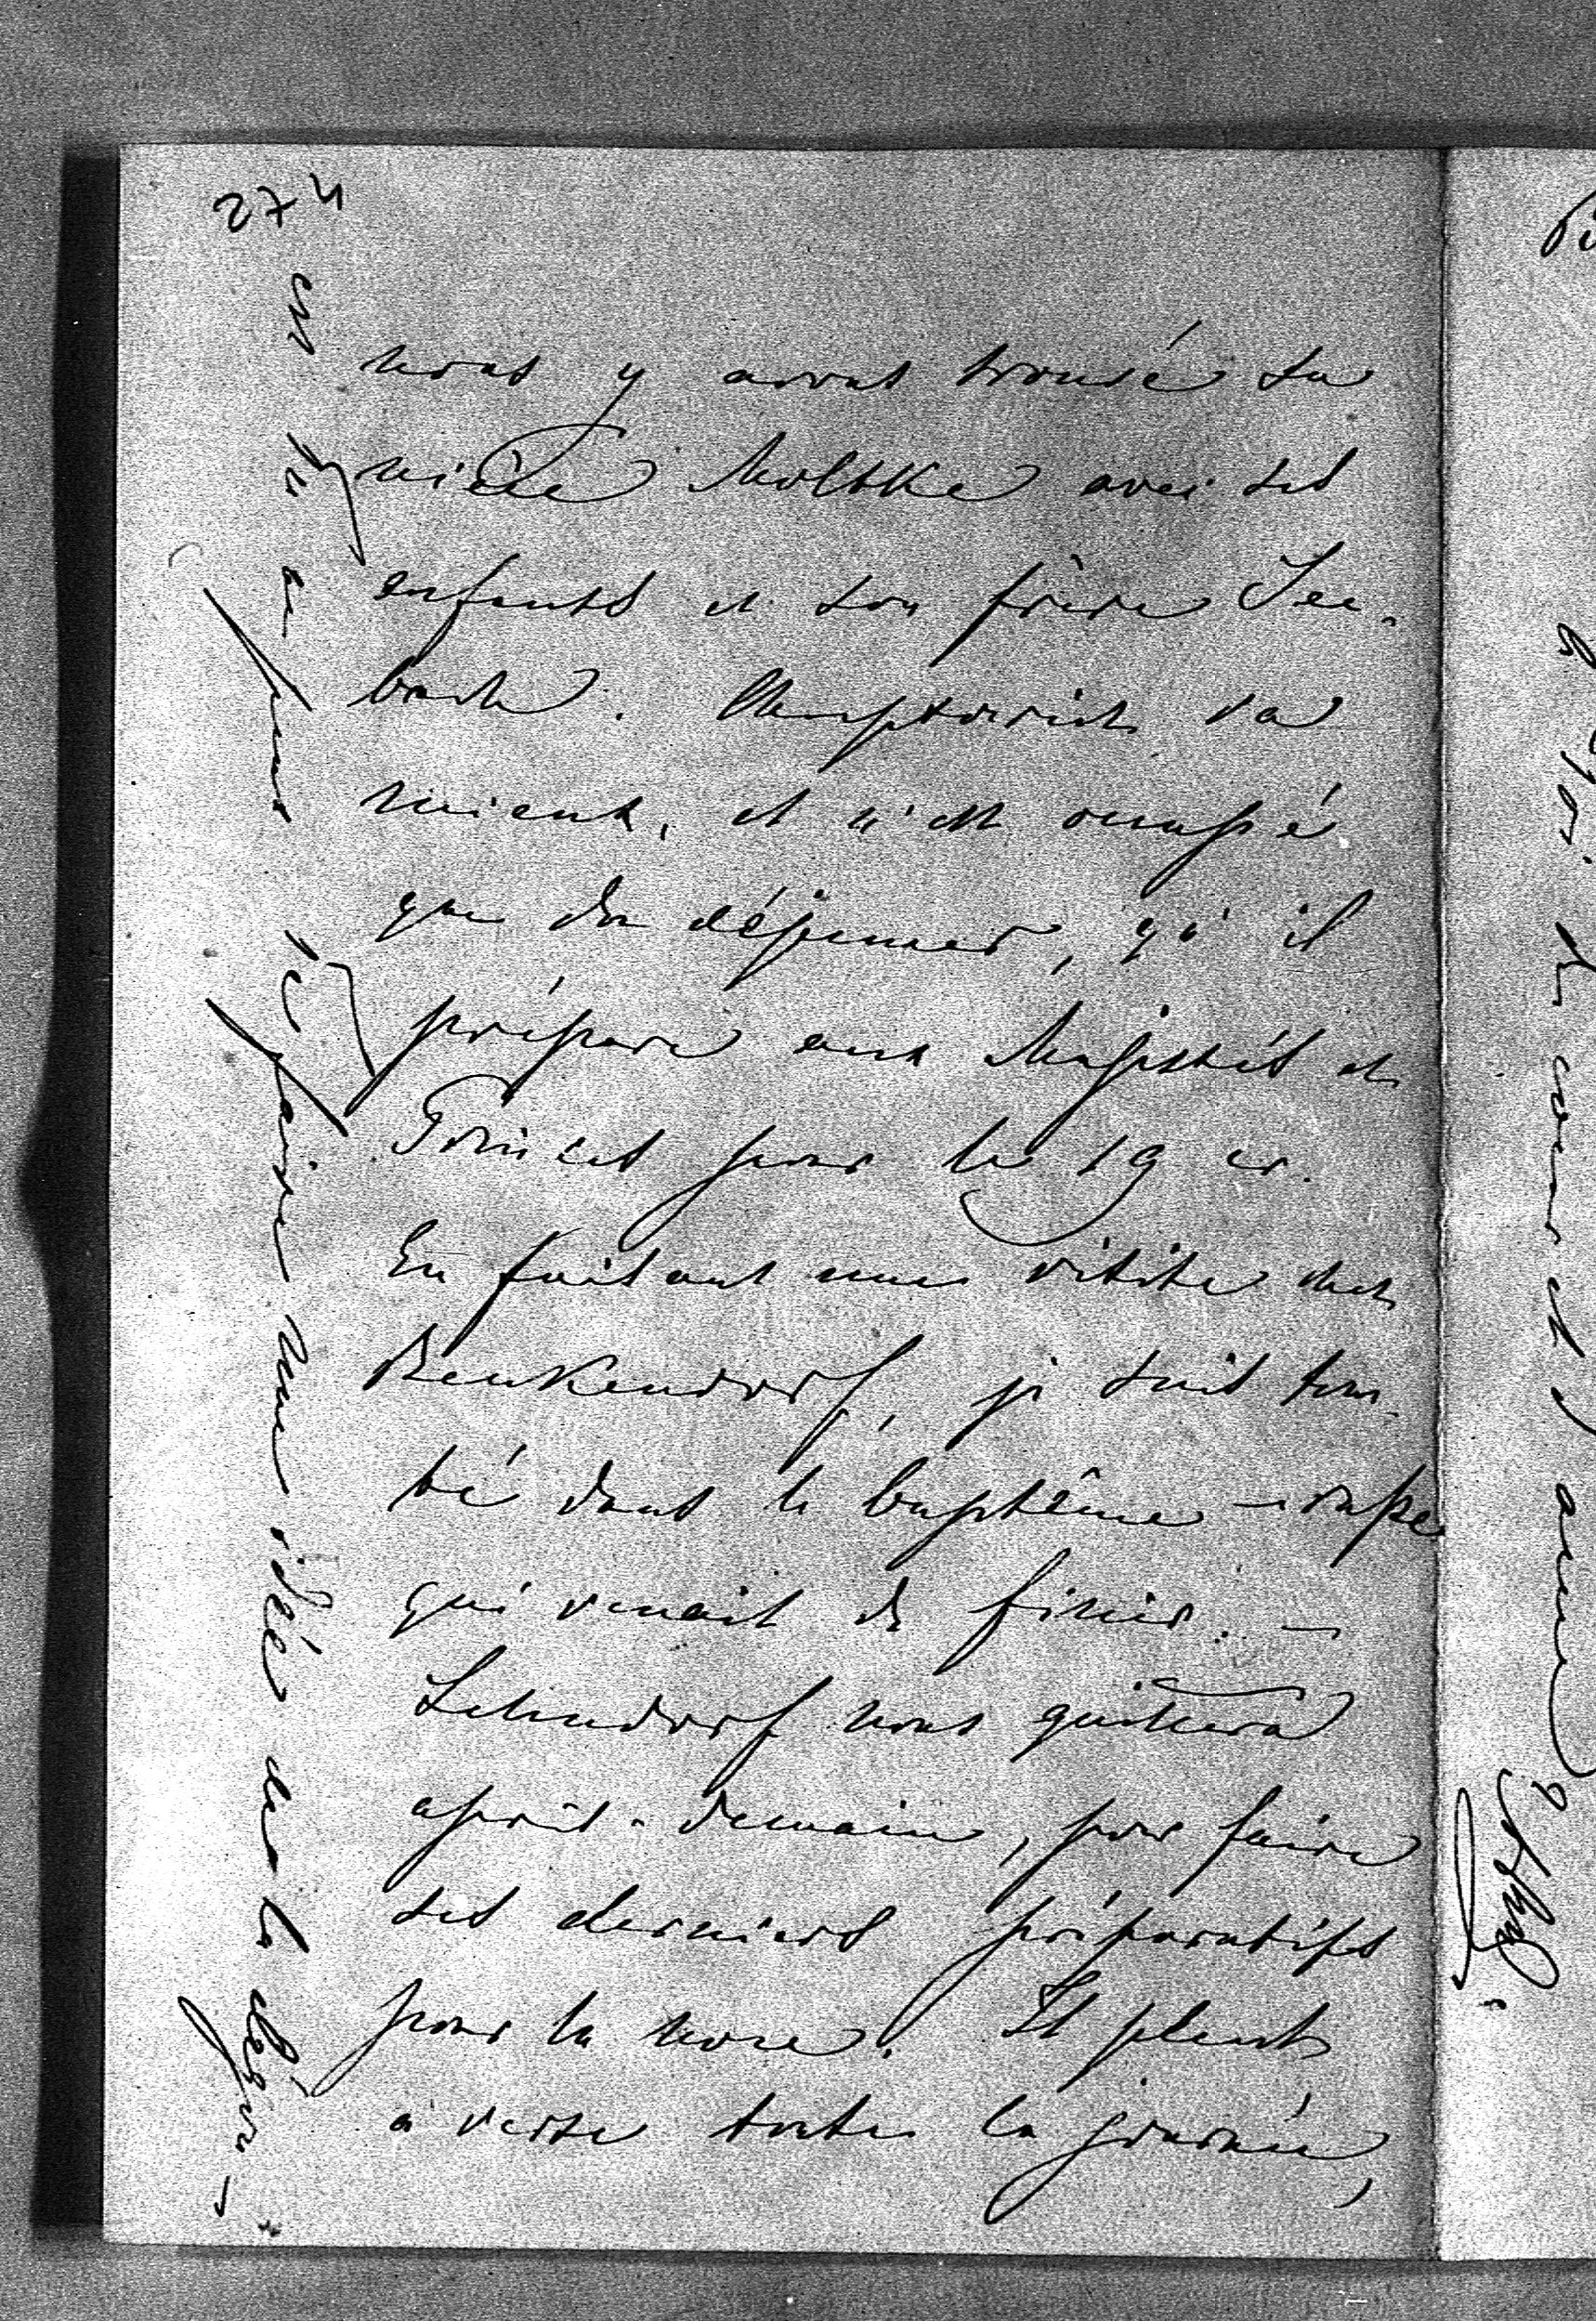 274
nous y avons trouvé sa
nièce Moltke avec ses
enfants et son frère See-
bach. Oumptovich va
mieux, et n'est occupé
que du déjeuner, qu'il
prépare aux Majestés et
Princes pour le 19 cr.
En faisant une visite chez
Benkendorf, je suis tom-
bé dans le baptême
qui venait de finir. —
Lehndorf nous quittera
après-demain, pour faire
ses derniers préparatifs
pour la noce. Il pleut
à verse toute la journée,
et je ne peux
me faire une idée de la